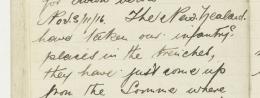 Nov 3/11/16. The New Zealand
have taken our infantry
places in the trenches,
they have just come up
from the Somme where